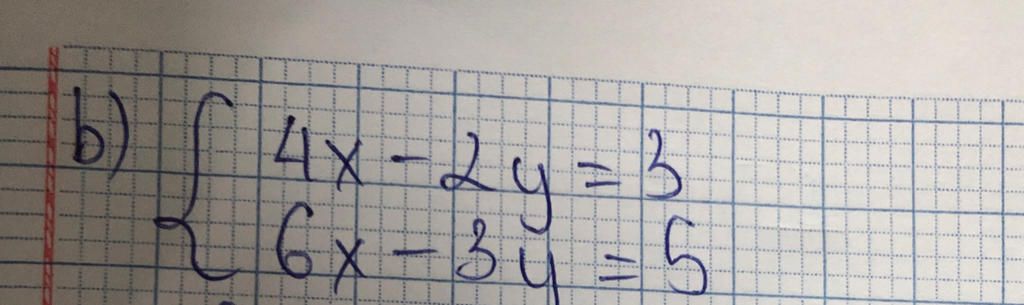 b) { 4x - 2y = 3
6x - 3y = 5